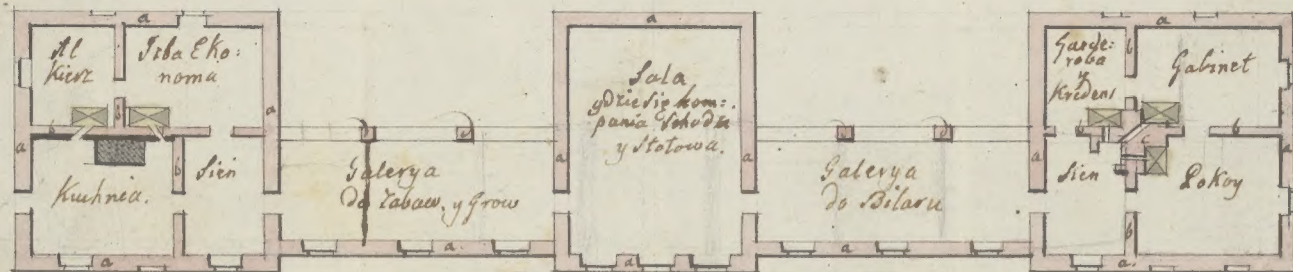 Al
kierz
Izba Eko:
noma
Kuchnia.
Sień
Galerya
do Zabaw. y Grow
Sala
gdzie się kom:
pania schodzi
y Stołowa.
Galerya
do Bilaru
Garde:
roba
y
Kredens
Gabinet
Sien
Pokoy
a
a
a
a
a
a
a.
a
a
a
a
a
a
a
a
a.
a
b
b
b
b
b
b
b
b
c